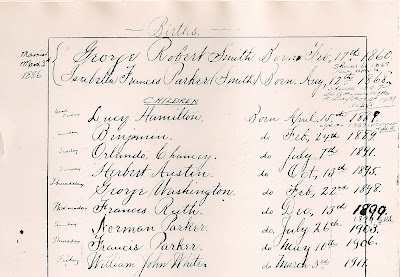 Births.
Married
March 3rd
1886
George Robert Smith Born Feb, 17th 1860.
Isabella Frances Parker (Smith) Born Aug, 13th 1866.
CHILDREN
Lucy Hamilton. Born April. 15th 1887.
Benjamin. do Feb, 24th 1889
Sunday Orlando Chancy. do July. 7th 1891.
Sunday Herbert Austin. do Oct, 13th 1895.
Thursday George Washington. do Feb, 22nd 1898.
Wednesday Frances Ruth. do Dec, 13th 1899.
Sunday Norman Parker. do July 26th 1903.
Thursday Francis Parker. do May 10th 1906.
Friday William John White. do March 3rd 1911.